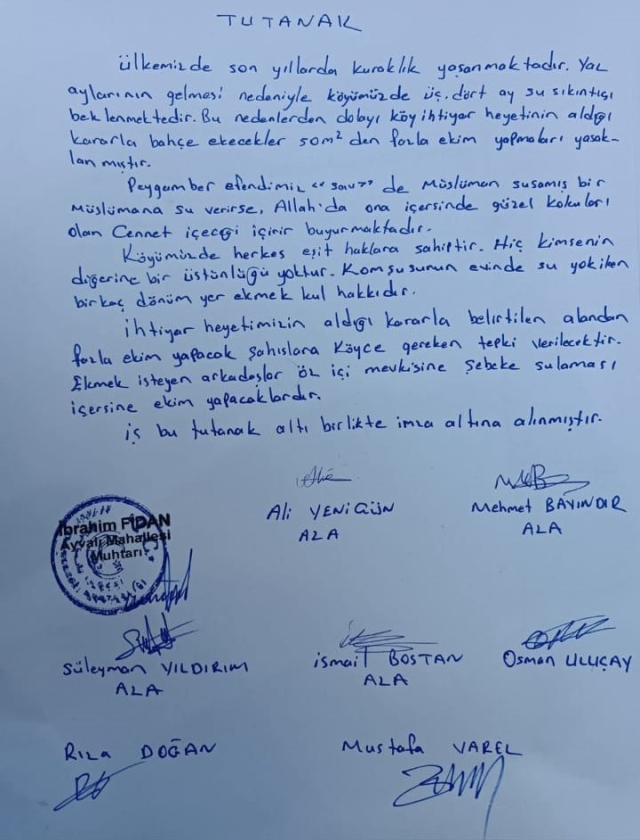 TUTANAK
Ülkemizde son yıllarda kuraklık yaşanmaktadır. Yaz
aylarının gelmesi nedeniyle köyümüzde üç. dört ay su sıkıntısı
beklenmektedir. Bu nedenlerden dolayı köy ihtiyar heyetinin aldığı
kararla bahçe ekecekler 50m² den fazla ekim yapmaları yasak-
lanmıştır.
Peygamber efendimiz "sav" de Müslüman susamış bir
Müslümana su verirse, Allah'da ona içersinde güzel kokuları
olan Cennet içeceği içirir buyurmaktadır.
Köyümüzde herkes eşit haklara sahiptir. Hiç kimsenin
diğerine bir üstünlüğü yoktur. Komşusunun evinde su yokiken
birkaç dönüm yer ekmek kul hakkıdır.
ihtiyar heyetimizin aldığı kararla belirtilen alandan
fazla ekim yapacak şahıslara Köyce gereken tepki verilecektir.
Ekmek isteyen arkadaşlar öz içi mevkisine Şebeke sulaması
içersine ekim yapacaklardır.
iş bu tutanak altı birlikte imza altına alınmıştır.
İbrahim FİDAN
Ayvalı Mahallesi
Muhtarı
Ali YENİGÜN
AZA
Mehmet BAYINDIR
AZA
Süleyman YILDIRIM
AZA
ismail BOSTAN
AZA
Osman ULUÇAY
Rıza DOĞAN
Mustafa VAREL